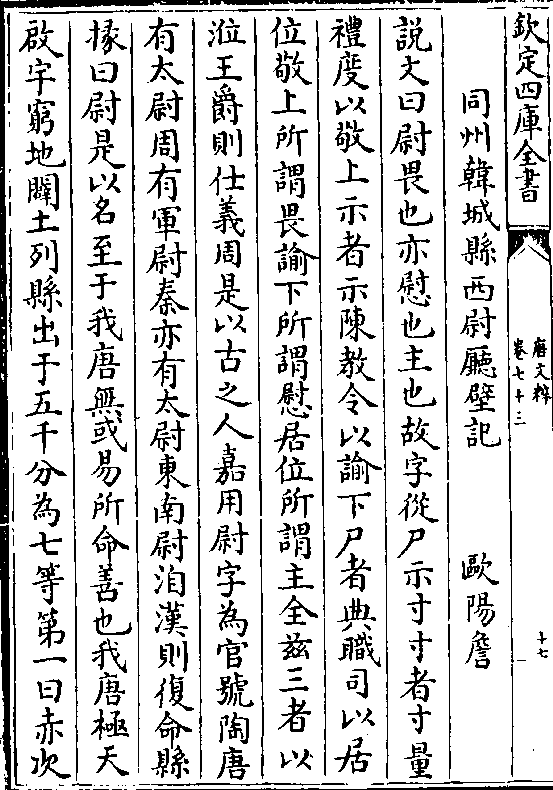 欽定四庫全書
唐文粹
卷七十三
十七
同州韓城縣西尉廳壁記 歐陽詹
說文曰尉畏也亦慰也主也故字從尸示寸寸者寸量
禮度以敬上示者示陳教令以諭下尸者典職司以居
位敬上所謂畏諭下所謂慰居位所謂主全兹三者以
涖王爵則仕義周是以古之人嘉用尉字為官號陶唐
有太尉周有軍尉秦亦有太尉東南尉洎漢則復命縣
掾曰尉是以名至于我唐無或易所命善也我唐極天
啟宇窮地闢土列縣出于五千分為七等第一曰赤次